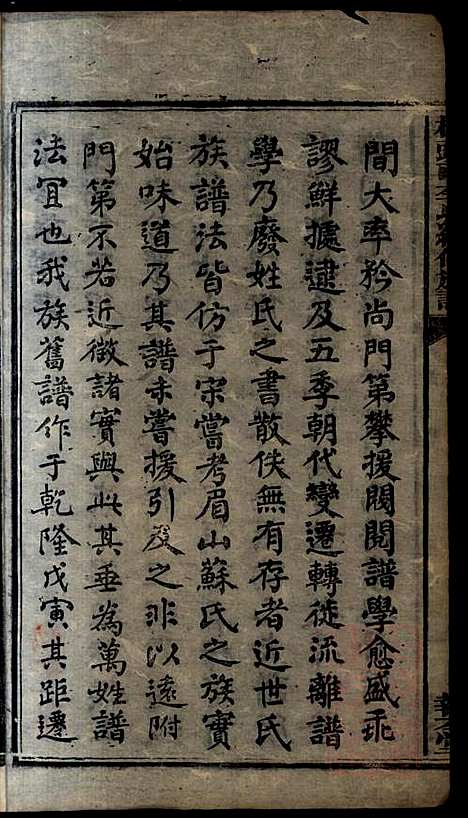 間大率矜尚門第攀援閥閱譜學愈盛乖
謬鮮據逮及五季朝代變遷轉徙流離譜
學乃廢姓氏之書散佚無有存者近世氏
族譜法皆仿于宋嘗考眉山蘇氏之族實
始味道乃其譜未嘗援引及之非以遠附
門第不若近徵諸實與此其垂為萬姓譜
法宜也我族舊譜作于乾隆戊寅其距遷